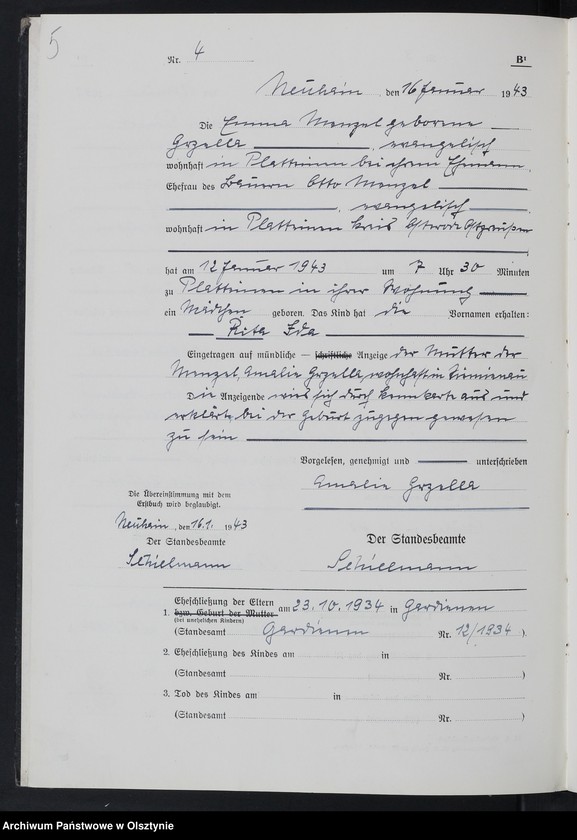 5
Nr. 4
B¹
Neuhain, den 16 Januar 1943
Die Emma Menzel geborene
Grzella, evangelisch
wohnhaft in Plattinen bei ihrem Ehemann,
Ehefrau des Bauern Otto Menzel
, evangelisch
wohnhaft in Plattinen Kreis Osterode Ostpreußen
hat am 12 Januar 1943 um 7 Uhr 30 Minuten
zu Plattinen in ihrer Wohnung
ein Mädchen geboren. Das Kind hat die Vornamen erhalten:
Rita Ida
Eingetragen auf mündliche — schriftliche Anzeige der Mutter der
Menzel, Amalie Grzella, wohnhaft in
Die Anzeigende wies sich durch Kennkarte aus und
erklärte, bei der Geburt zugegen gewesen
zu sein
Vorgelesen, genehmigt und unterschrieben
Amalie Grzella
Die Übereinstimmung mit dem
Erstbuch wird beglaubigt.
Neuhain, den 16.1. 1943
Der Standesbeamte
Der Standesbeamte
1. Eheschließung der Eltern
bzw. Geburt der Mutter am 23.10.1934 in Gardienen
(bei unehelichen Kindern)
(Standesamt Gardienen Nr. 12/1934)
2. Eheschließung des Kindes am in
(Standesamt Nr. )
3. Tod des Kindes am in
(Standesamt Nr. )
Archiwum Państwowe w Olsztynie